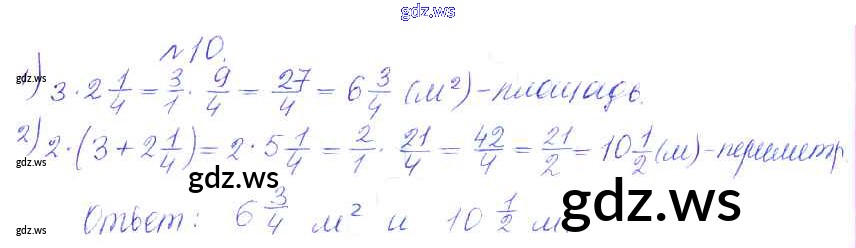 gdz.ws
№10.
1) 3 · 2 1/4 = 3/1 · 9/4 = 27/4 = 6 3/4 (м²) - площадь.
gdz.ws
2) 2 · (3 + 2 1/4) = 2 · 5 1/4 = 2/1 · 21/4 = 42/4 = 21/2 = 10 1/2 (м) - периметр.
gdz.ws
gdz.ws
gdz.ws
Ответ: 6 3/4 м² и 10 1/2 м
gdz.ws
gdz.ws